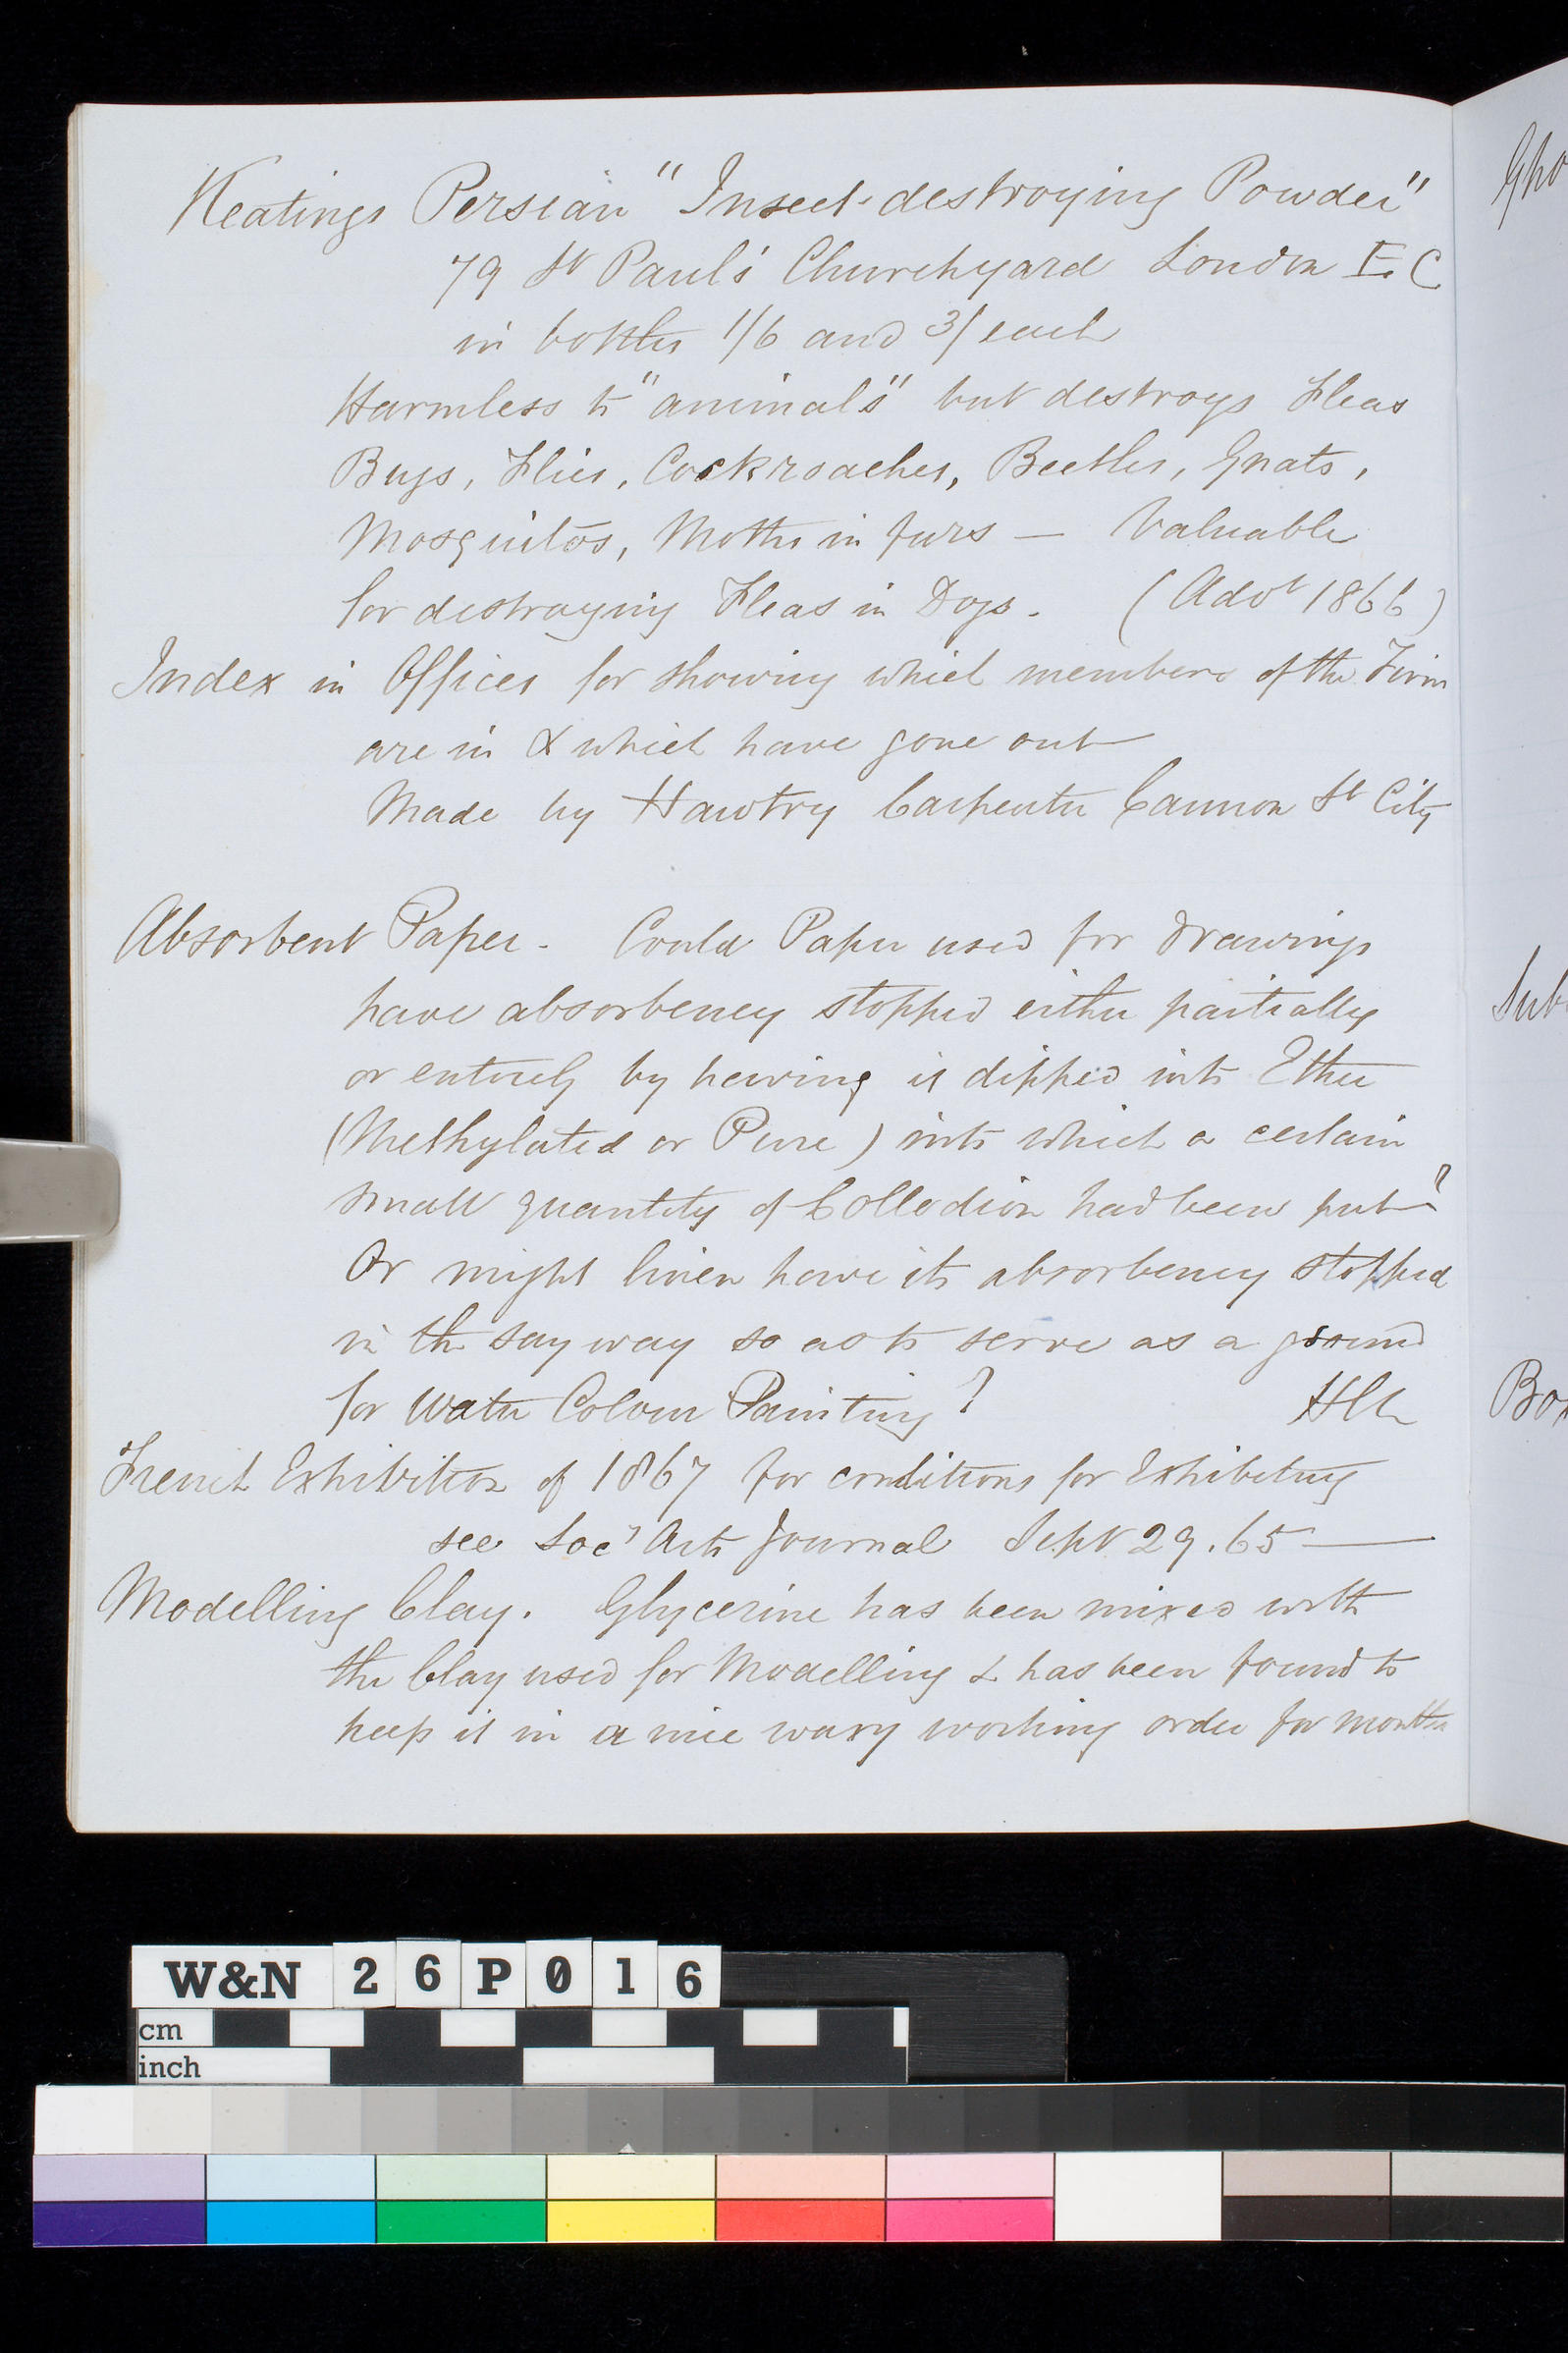 Keatings Persian "Insect-destroying Powder"
79 St Paul's Churchyard London E.C
in bottles 1/6 and 3/ each
Harmless to "animals" but destroys Fleas
Bugs, Flies, Cockroaches, Beetles, Gnats,
Mosquitos, Moths in furs — Valuable
for destroying Fleas in Dogs. (Advt 1866)
Index in Offices for showing which members of the Firm
are in & which have gone out
Made by Hawtry Carpenter Cannon St City
Absorbent Paper. Could Paper used for drawings
have absorbency stopped either partially
or entirely by having it dipped into Ether
(Methylated or Pure) into which a certain
small quantity of Collodion had been put?
Or might linen have its absorbency stopped
in the say way so as to serve as a ground
for Water Colour Painting?
French Exhibition of 1867 for conditions for Exhibiting
see Socy Arts Journal Sept 29. 65 —
Modelling Clay. Glycerine has been mixed with
the Clay used for Modelling & has been found to
keep it in a nice waxy working order for months
Gho
Sub
Box
W&N 26P016
cm
inch